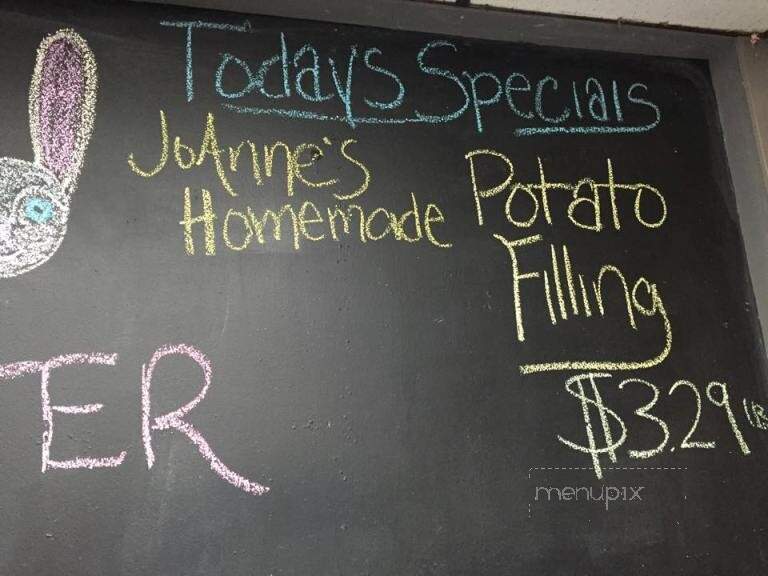 Todays Specials
JoAnne's
Homemade
Potato
Filling
$3.29 LB
ER
menupix